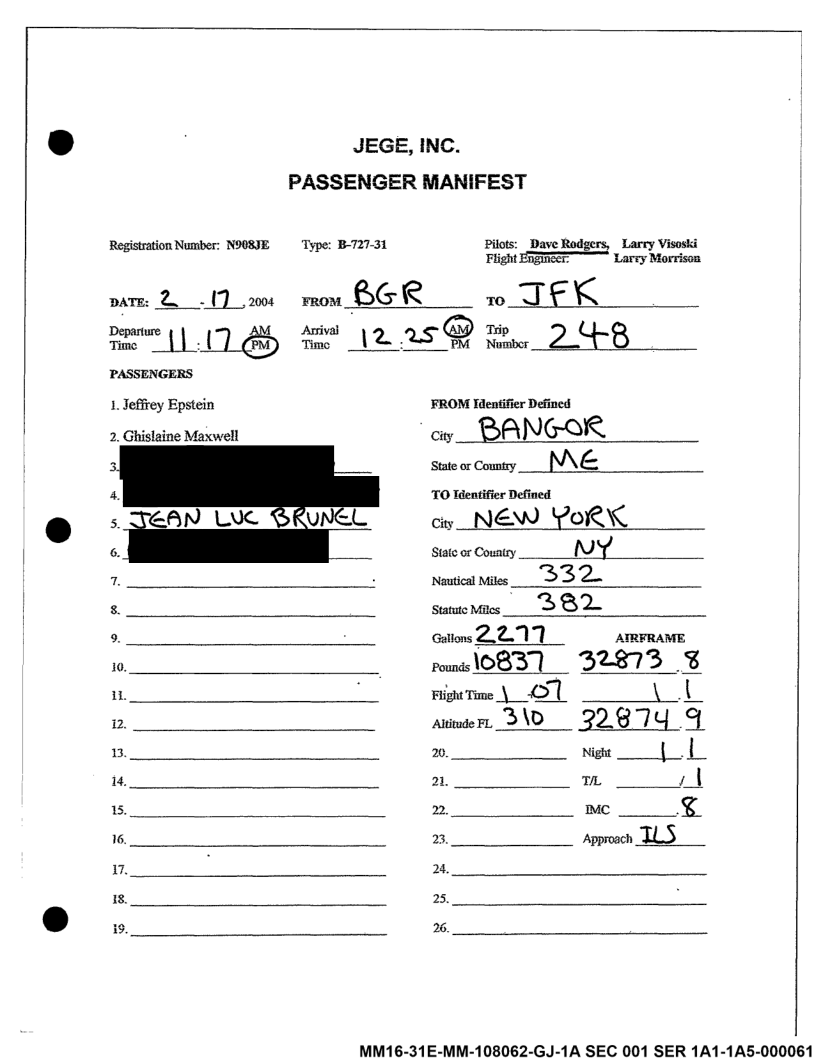 JEGE, INC.
PASSENGER MANIFEST
Registration Number: N908JE Type: B-727-31 Pilots: Dave Rodgers, Larry Visoski
Flight Engineer: Larry Morrison
DATE: 2 - 17, 2004 FROM BGR TO JFK
Departure Time 11:17 AM PM Arrival Time 12:25 AM PM Trip Number 248
PASSENGERS
1. Jeffrey Epstein
2. Ghislaine Maxwell
3.
4.
5. JEAN LUC BRUNEL
6.
7.
8.
9.
10.
11.
12.
13.
14.
15.
16.
17.
18.
19.
FROM Identifier Defined
City BANGOR
State or Country ME
TO Identifier Defined
City NEW YORK
State or Country NY
Nautical Miles 332
Statute Miles 382
Gallons 2277 AIRFRAME
Pounds 10837 32873.8
Flight Time 1-07 1.1
Altitude FL 310 32874.9
20. Night 1.1
21. T/L /1
22. IMC .8
23. Approach ILS
24.
25.
26.
MM16-31E-MM-108062-GJ-1A SEC 001 SER 1A1-1A5-000061